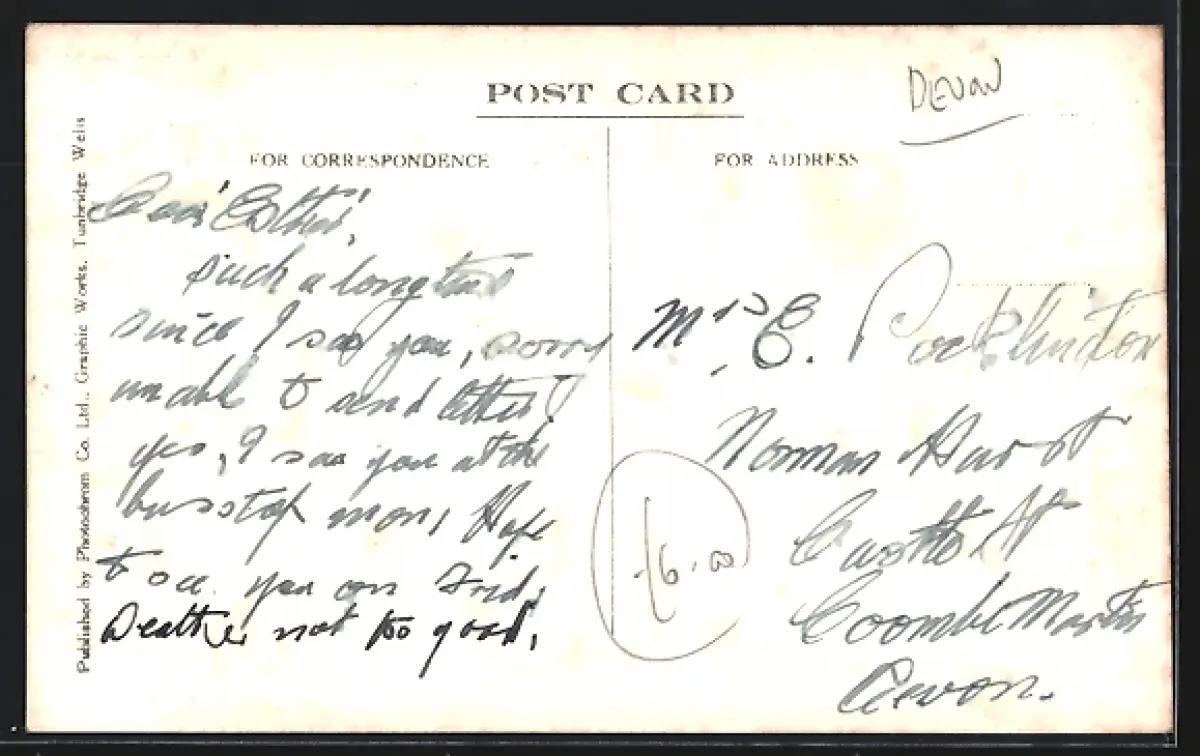 POST CARD
DEVON
FOR CORRESPONDENCE
FOR ADDRESS
Published by Photochrom Co. Ltd., Graphic Works, Tunbridge Wells
Dear
such a long time
since I see you, sorry
unable to send letter.
yes, I saw you at the
bus stop mon, Hope
to see you on Frid,
Weather not too good,
Mrs E. Pocklington
Norman Hurst
Coombe Martin
Devon.
£6.00